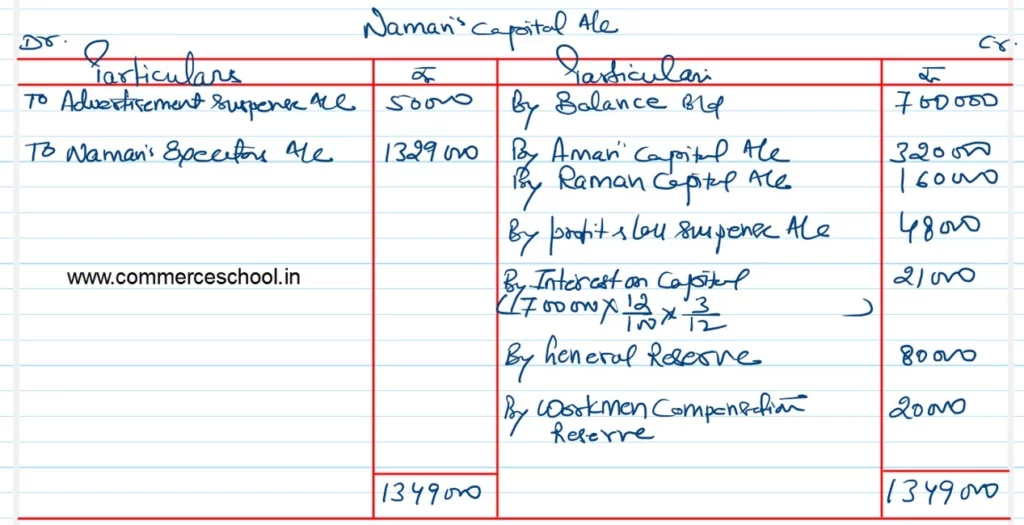 Naman's Capital A/c
Dr. Cr.
Particulars ₹ Particulars ₹
To Advertisement Suspense A/c 50000 By Balance B/d 700000
To Naman's Executors A/c 1329000 By Aman's Capital A/c 320000
By Raman Capital A/c 160000
By profit & loss suspense A/c 48000
www.commerceschool.in By Interest on Capital 21000
(700000 × 12/100 × 3/12)
By General Reserve 80000
By Workmen Compensation 20000
Reserve
1349000 1349000